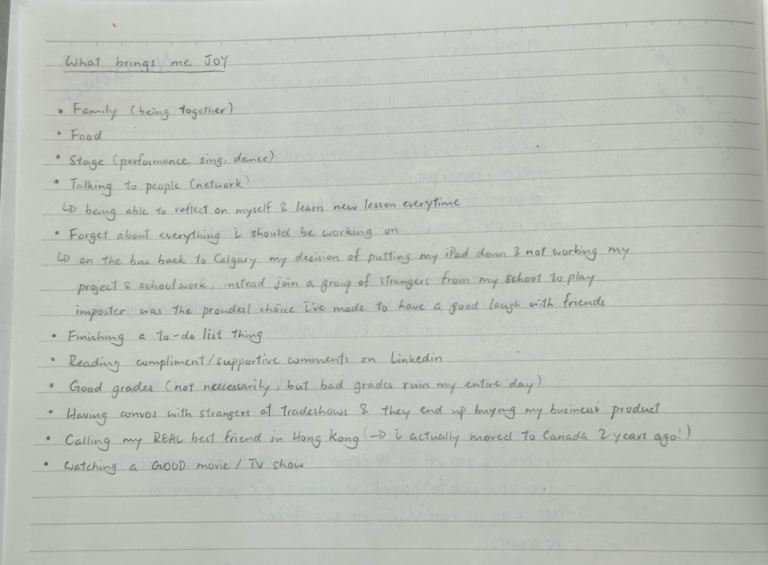 What brings me JOY
• Family (being together)
• Food
• Stage (performance, sing, dance)
• Talking to people (network)
↳ being able to reflect on myself & learn new lesson everytime
• Forget about everything i should be working on
↳ on the bus back to Calgary, my decision of putting my iPad down & not working my
project & schoolwork, instead join a group of strangers from my school to play
imposter was the proudest choice I've made to have a good laugh with friends
• Finishing a to-do list thing
• Reading compliment/supportive comments on Linkedin
• Good grades (not neccessarily, but bad grades ruin my entire day)
• Having convos with strangers at Tradeshows & they end up buying my business product
• Calling my REAL best friend in Hong Kong (→ i actually moved to Canada 2 years ago!)
• Watching a GOOD movie / TV show